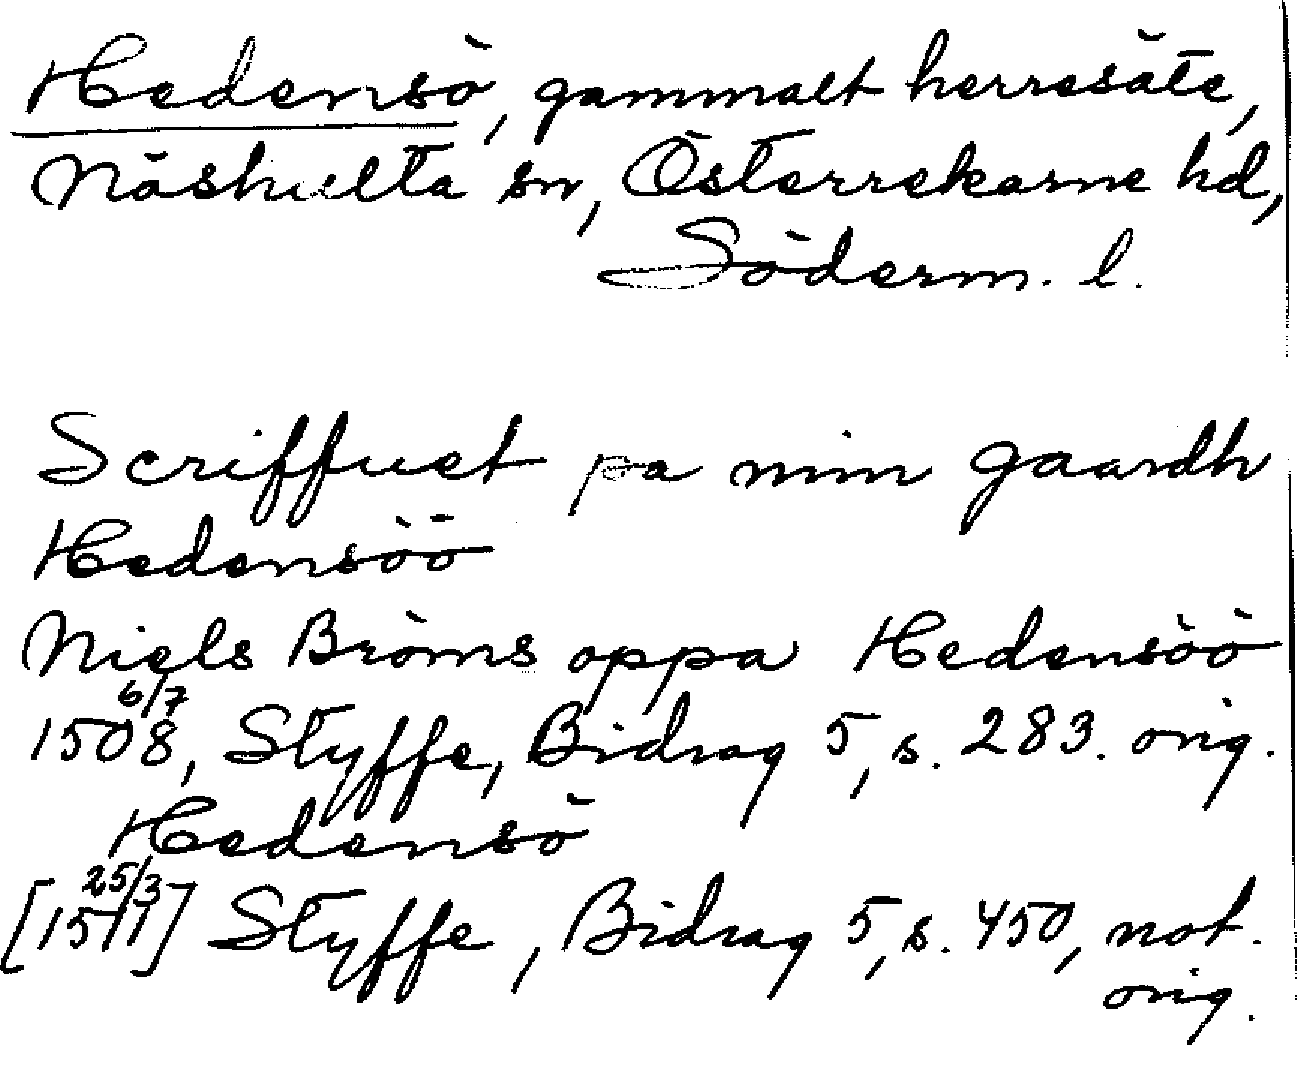 Hedensö, gammalt herresäte,
Näshulta sn, Österrekarne hd,
Söderm. l.
Scriffuet pa min gaardh
Hedensöö
Niels Bröms oppa Hedensöö
6/7
1508, Styffe, Bidrag 5, s. 283. orig.
Hedensö
25/3
[1511] Styffe, Bidrag 5, s. 450, not.
orig.